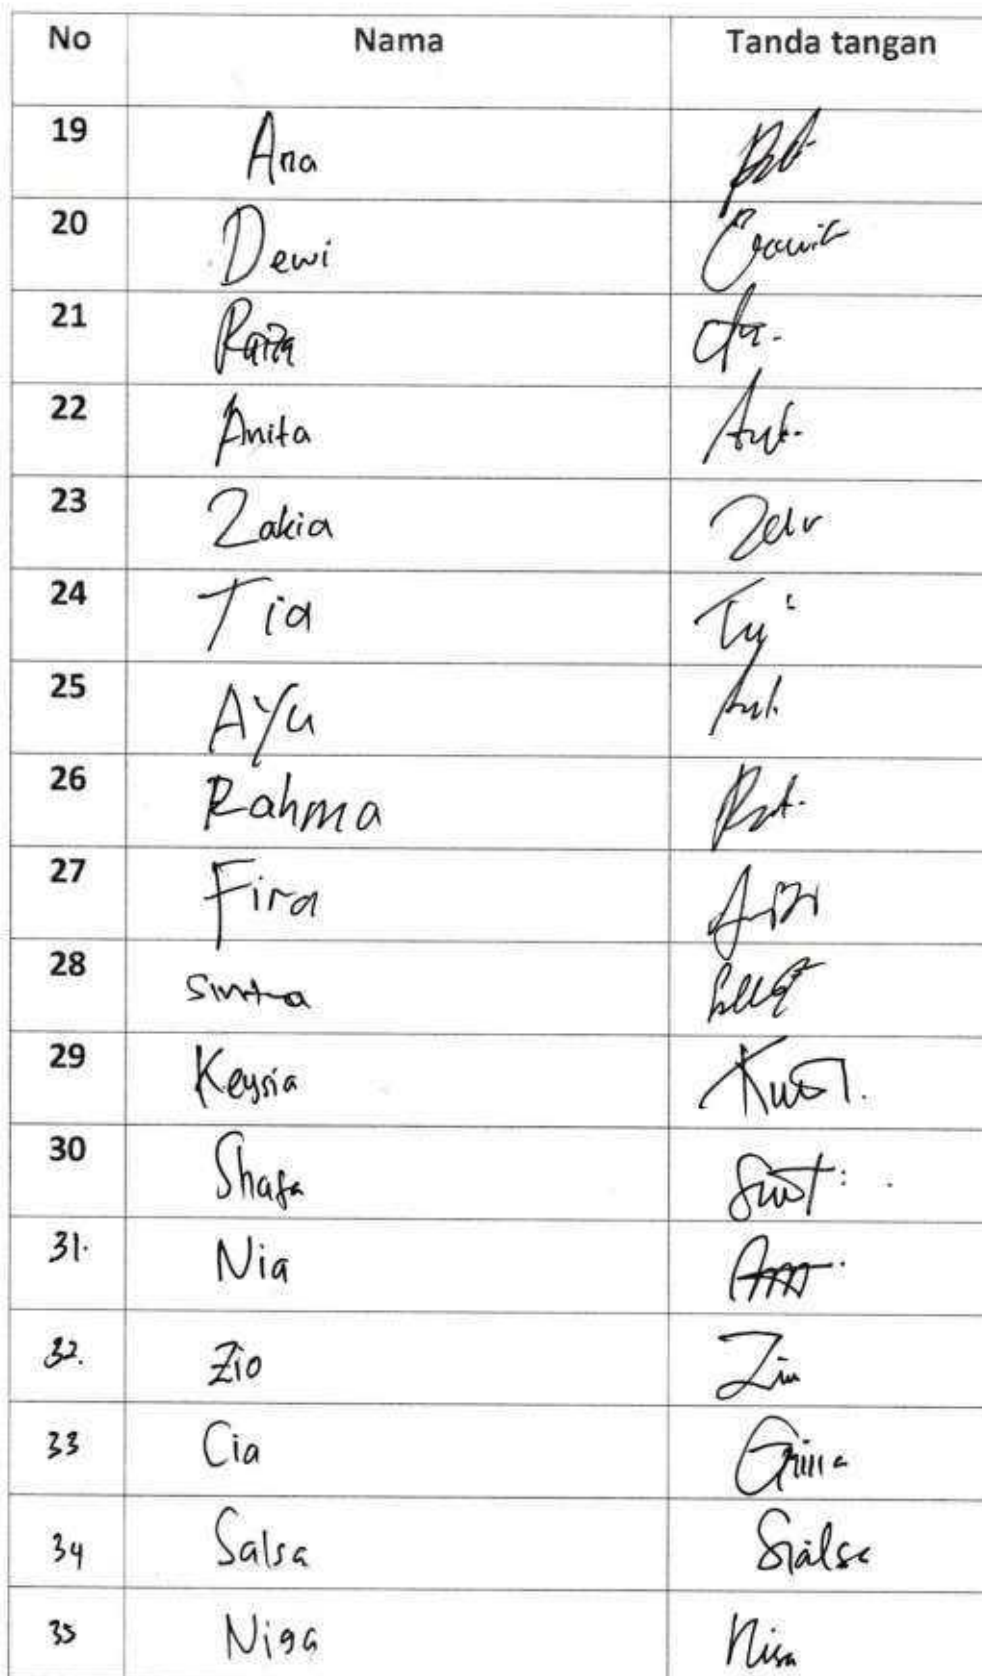 No Nama Tanda tangan
19 Ana
20 Dewi
21 Raiza
22 Anita
23 Zakia
24 Tia
25 AYu
26 Rahma
27 Fira
28 Sinta
29 Keysia
30 Shafa
31. Nia
32. Zio
33 Cia
34 Salsa Sialsa
35 Nisa Nisa